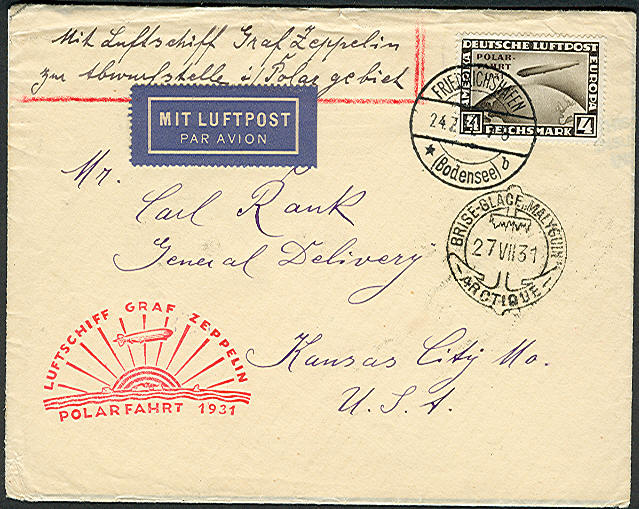 Mit Luftschiff Graf Zeppelin
zur Abwurfstelle i/Polargebiet
DEUTSCHE LUFTPOST
POLAR-
FAHRT
EUROPA
4 REICHSMARK 4
FRIEDRICHSHAFEN
24.7
★ (Bodensee)
MIT LUFTPOST
PAR AVION
Mr.
Carl Rank
General Delivery
Kansas City Mo.
U.S.A.
BRISE-GLACE „MALYGUIN“
27 VII 31
ARCTIQUE
LUFTSCHIFF GRAF ZEPPELIN
POLARFAHRT 1931